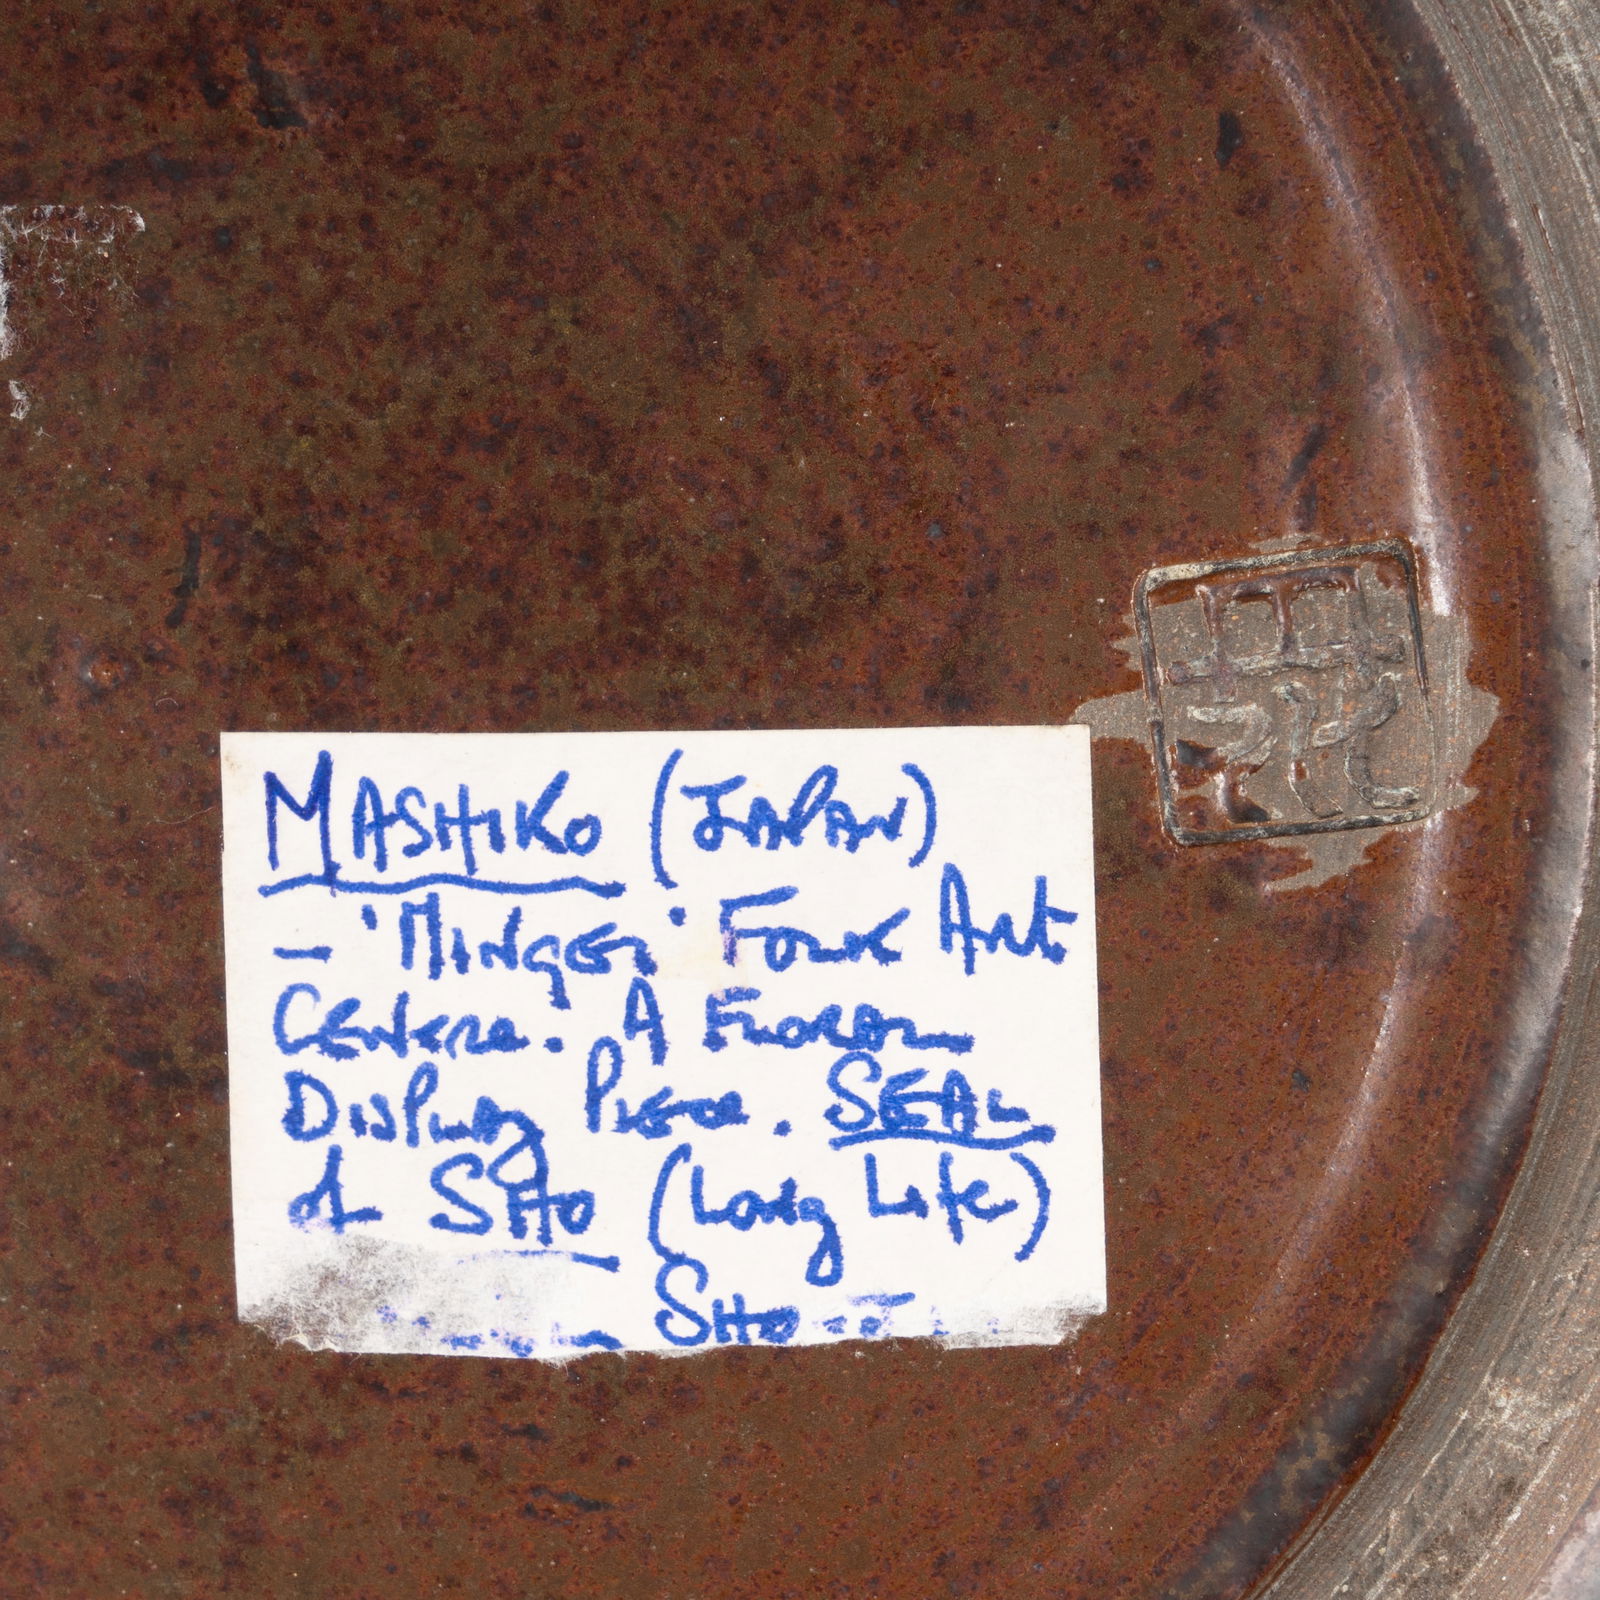 MASHIKO (JAPAN)
- 'MINGEI' FOLK ART
CENTRE. A
DISPLAY PIECE. SEAL
of SHO (LONG LIFE)
SHO